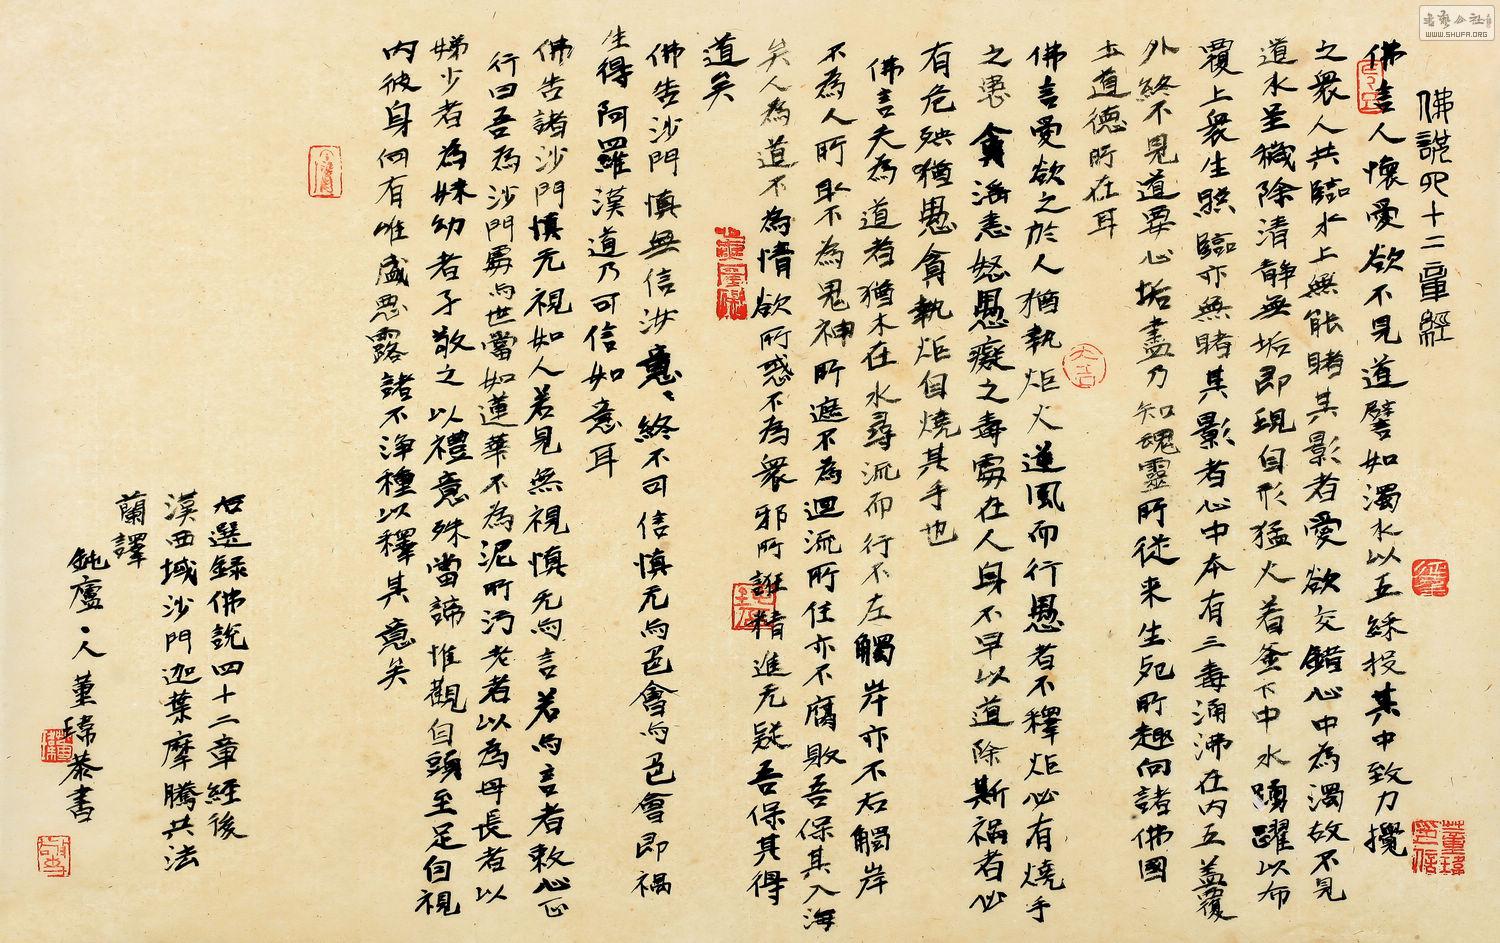 佛說四十二章經
佛言人懷愛欲不見道譬如濁水以五綵投其中致力攪
之衆人共臨水上無能睹其影者愛欲交錯心中為濁故不見
道水呈穢除清靜無垢即現自形猛火着釜下中水踴躍以布
覆上衆生照臨亦無睹其影者心中本有三毒涌沸在内五盖覆
外終不見道要心垢盡乃知魂靈所從来生死所趣向諸佛國
土道德所在耳
佛言愛欲之於人猶執炬火逆風而行愚者不釋炬必有燒手
之患貪婬恚怒愚癡之毒處在人身不早以道除斯禍者必
有危殃猶愚貪執炬自燒其手也
佛言夫為道者猶木在水尋流而行不左觸岸亦不右觸岸
不為人所取不為鬼神所遮不為迴流所住亦不腐敗吾保其入海
矣人為道不為情欲所惑不為衆邪所誑精進无疑吾保其得
道矣
佛告沙門慎無信汝意意終不可信慎无与色會与色會即禍
生得阿羅漢道乃可信如意耳
佛告諸沙門慎无視如人若見無視慎无与言若与言者敕心正
行曰吾為沙門處与世當如蓮華不為泥所汚老者以為母長者以
娣少者為妹幼者子敬之以禮意殊當諦惟觀自頭至足自視
内彼身何有唯盛惡露諸不淨種以釋其意矣
右選録佛說四十二章經後
漢西域沙門迦葉摩騰共法
蘭譯
鈍廬々人董瑋恭書
書藝公社
WWW.SHUFA.ORG